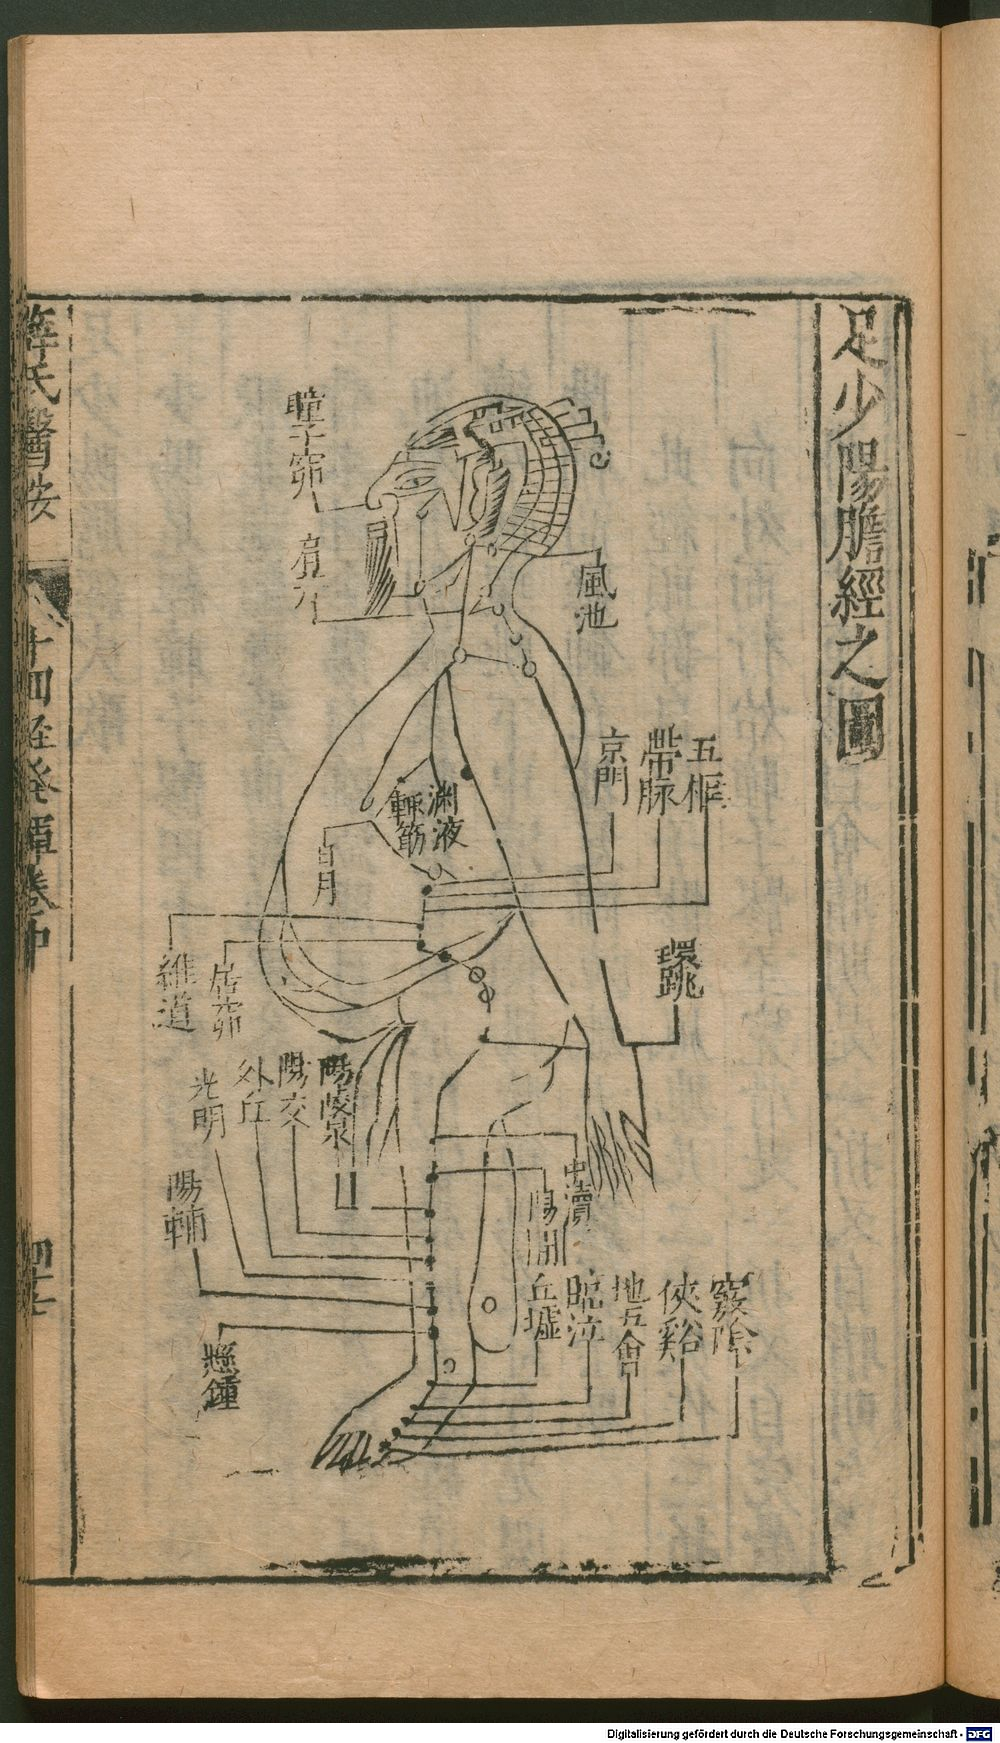 足少陽膽經之圖
瞳子窌
肩井
風池
五樞
帶脉
京門
淵液
輒筋
日月
環跳
維道
居窌
陽陵泉
陽交
外丘
光明
陽輔
懸鍾
中瀆
陽関
竅陰
俠谿
地五會
臨泣
丘墟
薛氏醫按
十四經發揮卷中
四十七
Digitalisierung gefördert durch die Deutsche Forschungsgemeinschaft - DFG